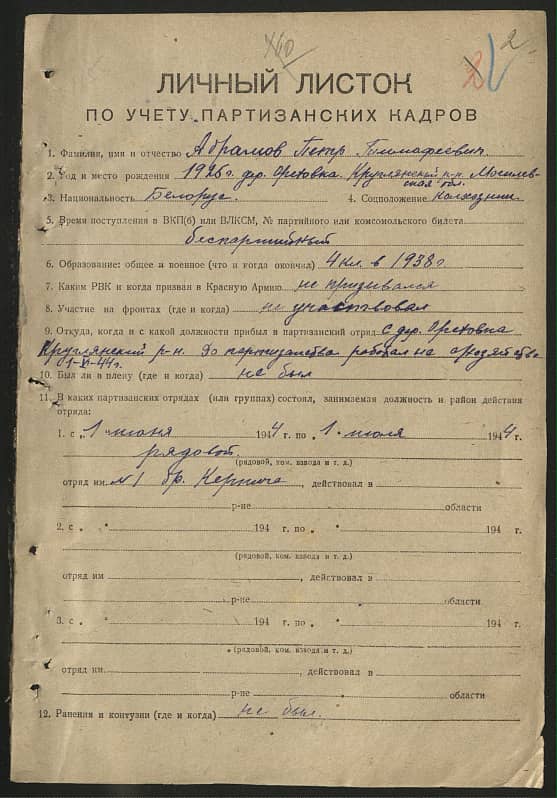 2
ЛИЧНЫЙ ЛИСТОК
ПО УЧЕТУ ПАРТИЗАНСКИХ КАДРОВ
1. Фамилия, имя и отчество Абрамов Петр Тимофеевич.
2. Год и место рождения 1926 г. дер. Ореховка Круглянский р-н. Могилев-
ская обл.
3. Национальность Белорус. 4. Соцположение Колхозник
5. Время поступления в ВКП(б) или ВЛКСМ, № партийного или комсомольского билета
беспартийный
6. Образование: общее и военное (что и когда окончил) 4 кл. в 1938 г
7. Каким РВК и когда призван в Красную Армию не призывался
8. Участие на фронтах (где и когда) не участвовал
9. Откуда, когда и с какой должности прибыл в партизанский отряд с дер. Ореховка
Круглянский р-н. До партизанства работал на
1-VI-44 г.
10. Был ли в плену (где и когда) не был
11. В каких партизанских отрядах (или группах) состоял, занимаемая должность и район действия
отряда:
1. с „1 июня 1944 г. по „1" июля 1944 г.
рядовой.
(рядовой, ком. взвода и т. д.)
отряд им. №1 бр. , действовал в
р-не области
2. с „ " 194 г. по " 194 г.
(рядовой, ком. взвода и т. д.)
отряд им , действовал в
р-не области
3. с „ " 194 г. по " 194 г.
(рядовой, ком. взвода и т. д.)
отряд им. , действовал в
р-не области
12. Ранения и контузии (где и когда) не был.